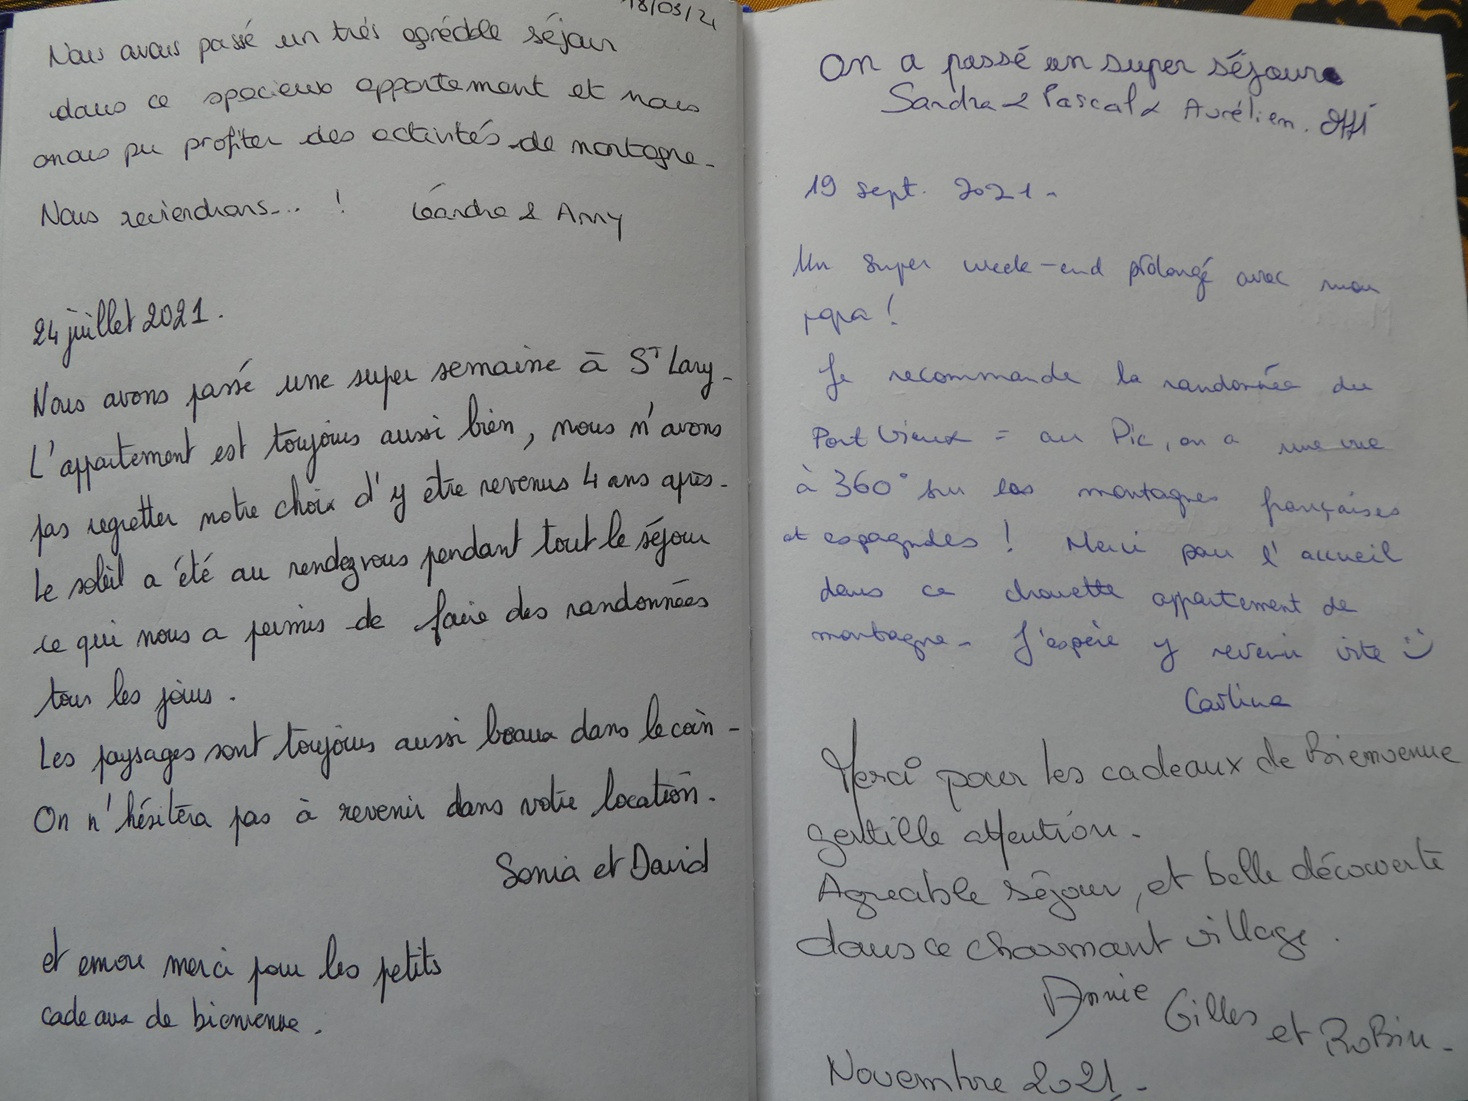 18/03/21
Nous avons passé un très agréable séjour
dans ce spacieux appartement et nous
avons pu profiter des activités de montagne.
Nous reviendrons... ! Léandre & Anny
24 juillet 2021.
Nous avons passé une super semaine à St Lary.
L'appartement est toujours aussi bien, nous n'avons
pas regretter notre choix d'y être revenus 4 ans après.
Le soleil a été au rendez vous pendant tout le séjour
ce qui nous a permis de faire des randonnées
tous les jours.
Les paysages sont toujours aussi beaux dans le coin.
On n'hésitera pas à revenir dans votre location.
Sonia et David
et encore merci pour les petits
cadeaux de bienvenue.
On a passé un super séjour
Sandra & Pascal & Aurélien.
19 sept. 2021.
Un super week-end prolongé avec mon
papa !
Je recommande la randonnée du
Port Vieux = au Pic, on a une vue
à 360° sur les montagnes françaises
et espagnoles ! Merci pour l'accueil
dans ce chouette appartement de
montagne. J'espère y revenir vite :)
Carline
Merci pour les cadeaux de Bienvenue
gentille attention.
Agreable séjour, et belle découverte
dans ce charmant village.
Annie Gilles et Robin.
Novembre 2021.